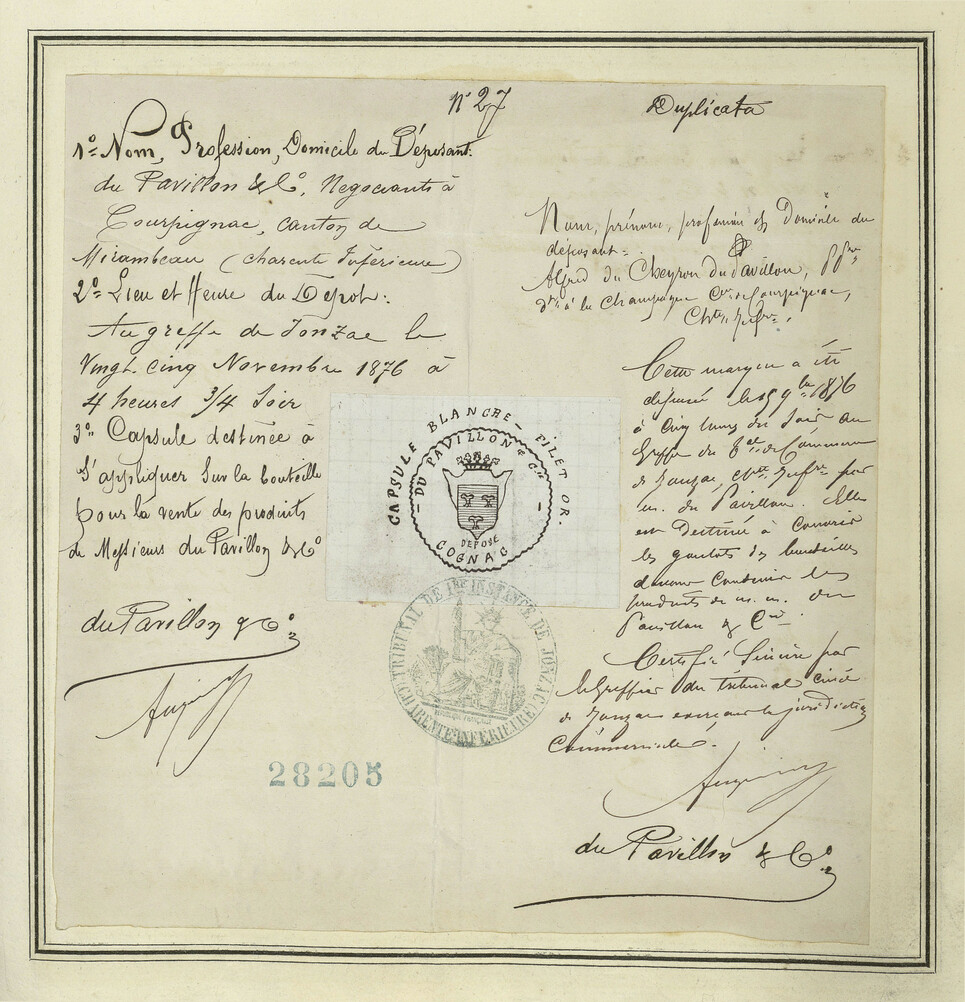 n° 27
Duplicata
1° Nom, Profession, Domicile du Déposant:
du Pavillon & Co, Negociants à
Courpignac, canton de
Mirambeau (Charente Inférieure)
2° Lieu et Heure du Dépot:
Au greffe de Jonzac le
Vingt cinq Novembre 1876 à
4 heures 3/4 Soir
3° Capsule destinée à
s'appliquer sur la bouteille
pour la vente des produits
de Messieurs du Pavillon & Co
du Pavillon & Co
28205
CAPSULE BLANCHE – FILET OR.
– DU PAVILLON & Cie –
DÉPOSÉ
COGNAC
TRIBUNAL DE 1RE INSTANCE DE JONZAC
(CHARENTE-INFÉRIEURE)
Nom, prénom, profession et Domicile du
déposant:
Alfred du Cheyron du Pavillon, ppre
dt à la Champagne Cne de Courpignac,
Chte Infre.
Cette marque a été
déposée le 25 9bre 1876
à cinq heures du soir au
Greffe du Tal de Commerce
de Jonzac, Chte Infre par
m. du Pavillon. Elle
est Destinée à Couvrir
les goulots des bouteilles
devant Contenir les
produits de m.m. du
Pavillon & Cie
Certifié Sincère par
le Greffier du tribunal civil
de Jonzac exerçant la juridiction
Commerciale.
du Pavillon & Co